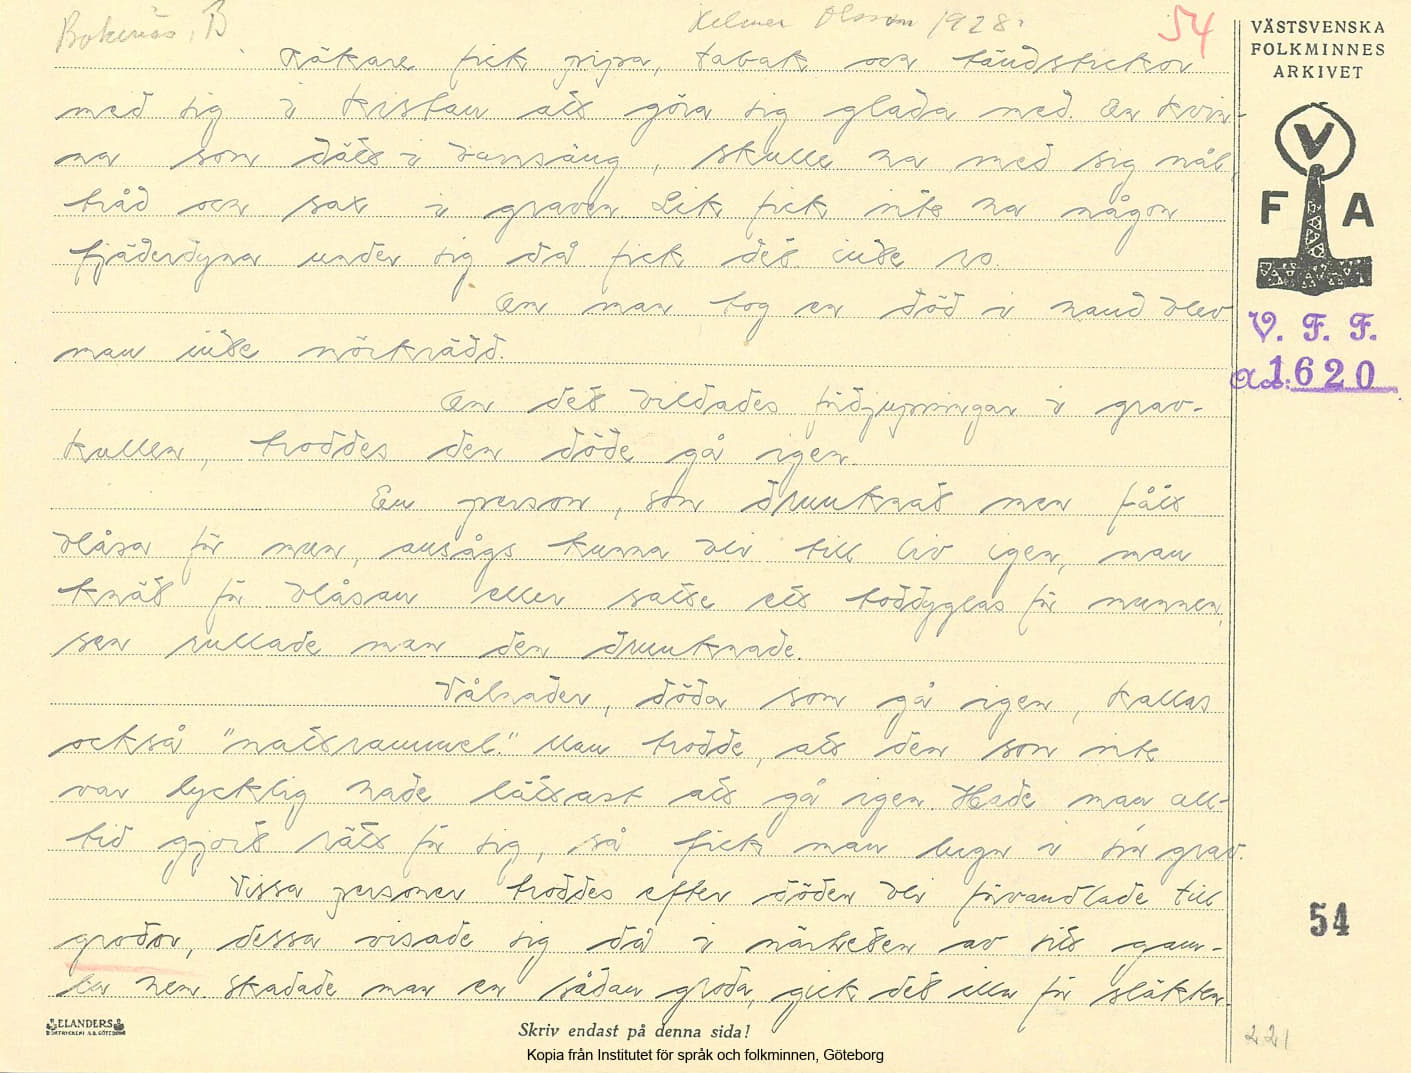 Bokenäs, B
Helmer Olsson 1928.
54
VÄSTSVENSKA
FOLKMINNES
ARKIVET
V
F A
V. F. F.
Acc: 1620
Rökare fick pipa, tabak och tändstickor
med sig i kistan att göra sig glada med. En kvin-
na som dött i barnsäng, skulle ha med sig nål,
tråd och sax i graven. Lik fick inte ha någon
fjäderdyna under sig då fick det inte ro.
Om man tog en död i hand blev
man inte mörkrädd.
Om det bildades fördjupningar i grav-
kullen, troddes den döde gå igen.
En person, som drunknat men fått
blåsa för mun, ansågs kunna bli till liv igen, man
knöt för blåsan eller satte ett toddyglas för munnen,
sen rullade man den drunknade.
Vålnader, döda som gå igen, kallas
också "nattrammel." Man trodde, att den som inte
var lycklig hade lättast att gå igen. Hade man all-
tid gjort rätt för sig, så fick man lugn i sin grav.
Vissa personer troddes efter döden bli förvandlade till
grodor, dessa visade sig då i närheten av sitt gam-
la hem. Skadade man en sådan groda, gick det illa för släkten.
54
ELANDERS
BOKTRYCKERI A.B. GÖTEBORG
Skriv endast på denna sida!
221
Kopia från Institutet för språk och folkminnen, Göteborg